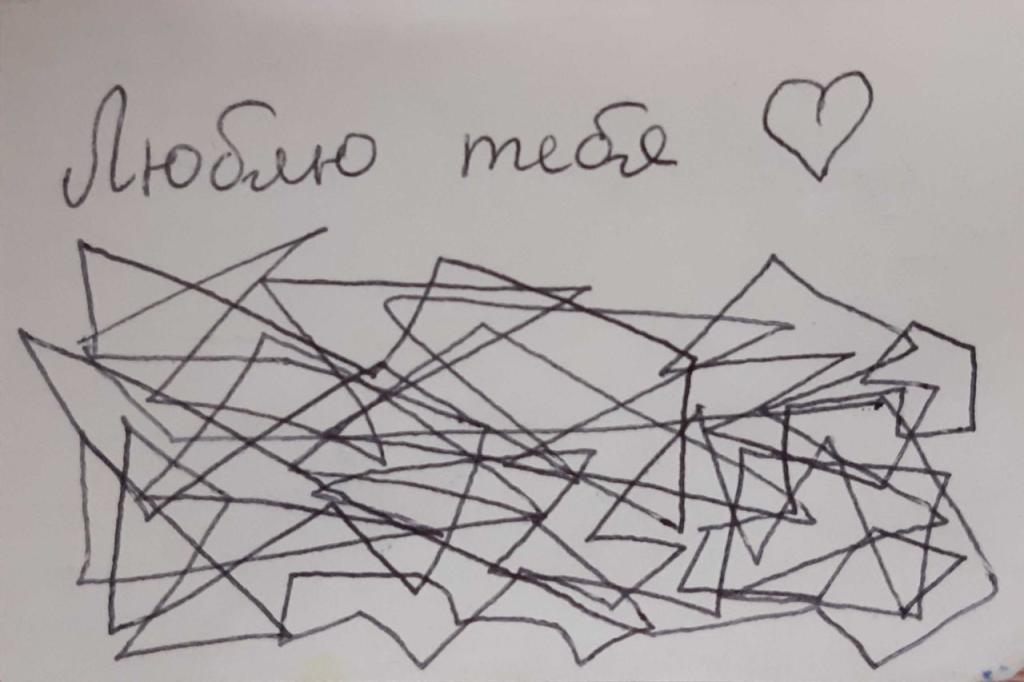 Люблю тебя